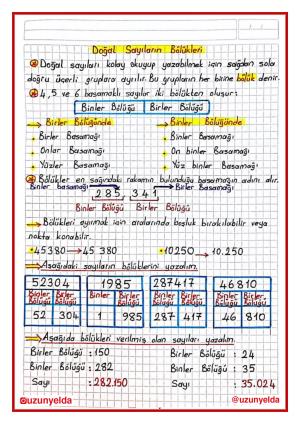 Doğal Sayıların Bölükleri
Doğal sayıları kolay okuyup yazabilmek için sağdan sola
doğru üçerli gruplara ayrılır. Bu grupların her birine bölük denir.
4, 5 ve 6 basamaklı sayılar iki bölükten oluşur:
Binler Bölüğü Birler Bölüğü
Birler Bölüğünde Binler Bölüğünde
Birler Basamağı Binler Basamağı
Onlar Basamağı On binler Basamağı
Yüzler Basamağı Yüz binler Basamağı
Bölükler en sağındaki rakamın bulunduğu basamağın adını alır.
Binler basamağı 285, 341 Birler Basamağı
Binler Bölüğü Birler Bölüğü
Bölükleri ayırmak için aralarında boşluk bırakılabilir veya
nokta konabilir.
45380 → 45 380 10250 → 10.250
Aşağıdaki sayıların bölüklerini yazalım.
52304 1985 287417 46810
Binler Bölüğü Birler Bölüğü Binler Birler Bölüğü Binler Bölüğü Birler Bölüğü Binler Bölüğü Birler Bölüğü
52 304 1 985 287 417 46 810
Aşağıda bölükleri verilmiş olan sayıları yazalım.
Birler Bölüğü : 150 Birler Bölüğü : 24
Binler Bölüğü : 282 Binler Bölüğü : 35
Sayı : 282.150 Sayı : 35.024
@uzunyelda @uzunyelda